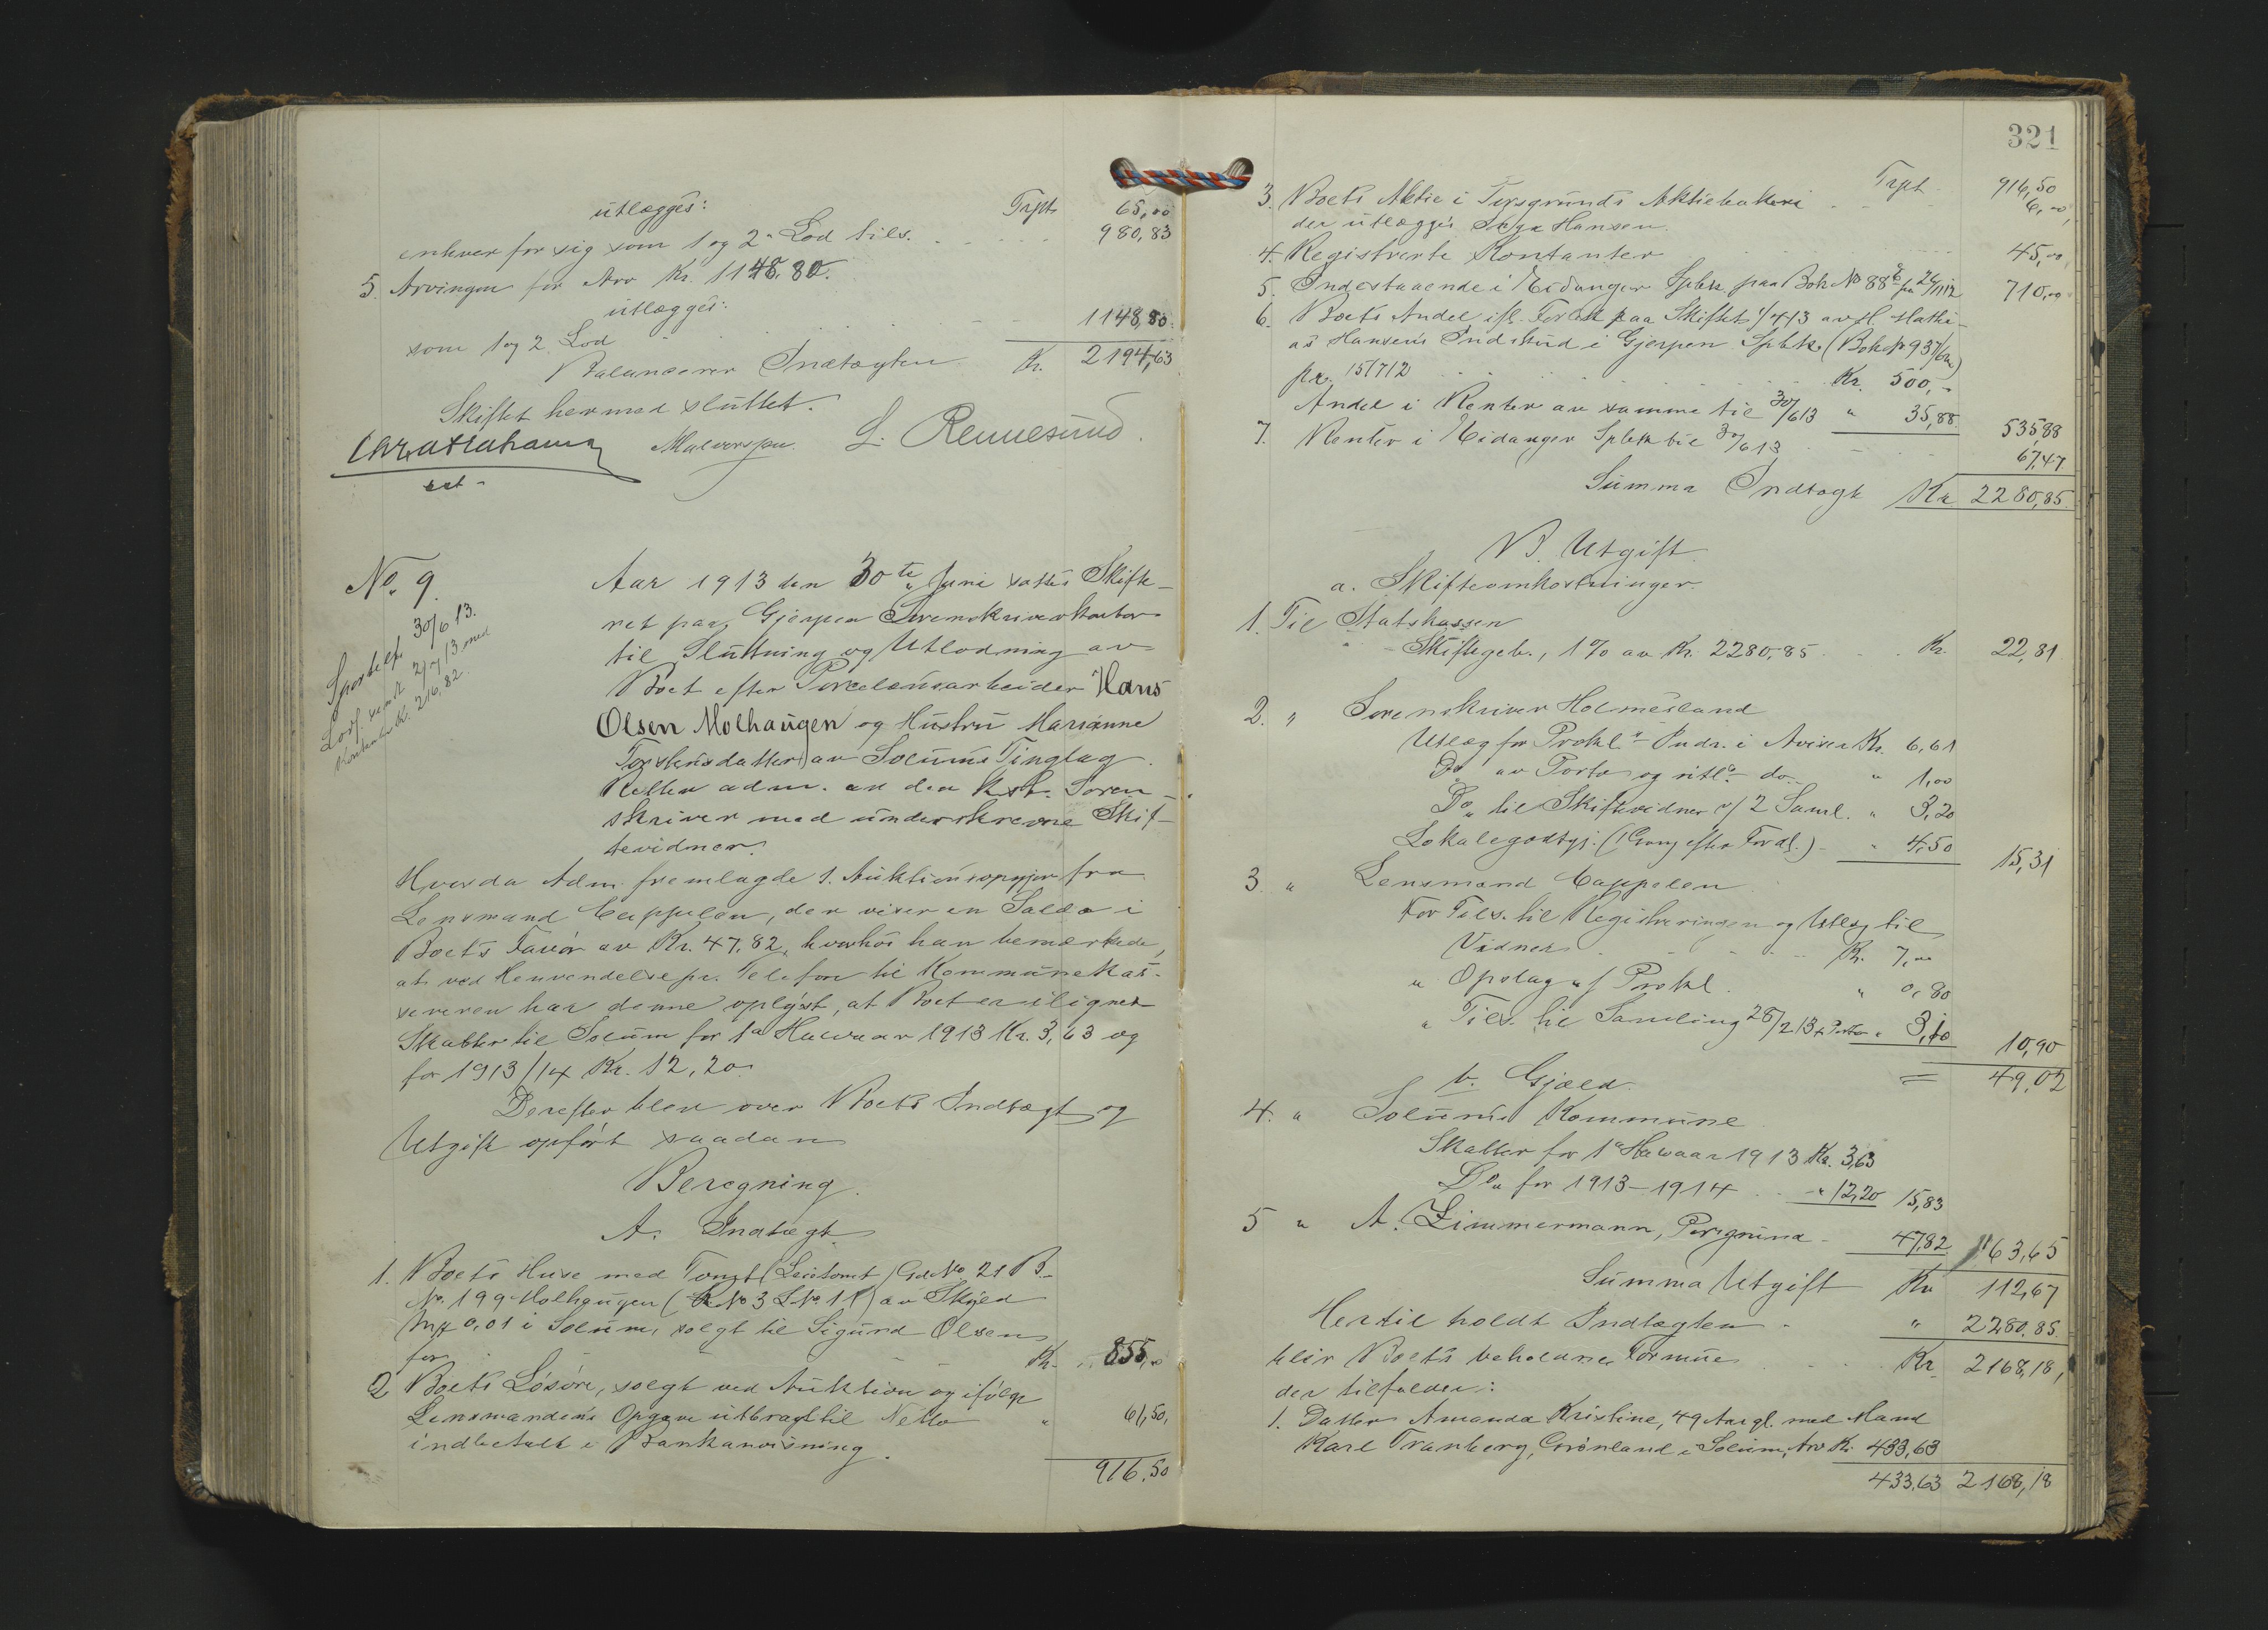 utlægges: Trpt. 65,00
enhver for sig som 1 og 2. Lod tils. 980,83
5. Arvingen for Arv Kr. 1148.80.
utlægges:
som 1 og 2 Lod 1148,80
Balancerer Indtægten Kr. 2194,63
Skiftet hermed sluttet.
L. Rennesund.
cst.
No. 9.
Sportelf. 30/6 13.
Aar 1913 den 30te Juni sattes Skifte-
ret paa Gjerpen Sorenskriverkontor
til Slutning og Utlodning av
Boet efter Porcelænsarbeider Hans
Olsen Molhaugen og Hustru Marianne
Torstensdatter av Solums Tinglag.
Retten adm. av den kst. Soren-
skriver med underskrevne Skif-
tevidner.
Hvorda Adm. fremlagde 1. Auktionsopgjør fra
Lensmand Cappelen, der viser en Saldo i
Boets Favør av Kr. 47,82, hvorhos han bemærkede,
at ved Henvendelse pr. Telefon til Kommunekas-
sereren har denne oplyst, at Boet er ilignet
Skatter til Solum for 1ste Halvaar 1913 Kr. 3,63 og
for 1913/14 Kr. 12,20.
Derefter blev over Boets Indtægt og
Utgift opført saadan
Beregning.
A. Indtægt
1. Boets Huse med Tomt (Leietomt) Gd No 21 B-
No. 199 Molhaugen (R No 3 L No. 11) av Skyld
Mrk 0,01 i Solum, solgt til Sigurd Olsen
for Kr. 855,00
2 Boets Løsøre, solgt ved Auktion og ifølge
Lensmandens Opgave utbragt til Netto " 61,50,
indbetalt i Bankanvisning.
916,50
321
Trpt. 916,50
3. Boets Aktie i Porsgrunds Aktiebakeri 6,00,
der utlægges Helga Hansen.
4. Registrerte Kontanter 45,00,
5. Indestaaende i Eidanger Spbk. paa Bok No 88 pr 26/11 12 710,00
6. Boets Andel ifl. Forlik paa Skiftet 1/4 13 av fl. Mathi-
as Hansens Indskud i Gjerpen Spbk. (Bok No 937/
pr. 15/7 12 Kr. 500,-
Andel i Renter av samme til 30/6 13 " 35,88 535,88
7. Renter i Eidanger Spbk til 30/6 13 67,47
Summa Indtægt Kr 2280,85
B. Utgift
a. Skifteomkostninger.
1. Til Statskassen
Skiftegeb., 1% av Kr. 2280,85 Kr. 22,81
2. " Sorenskriver Holmesland
Utlæg for Prokl. Indr. i Aviser Kr. 6,61
Do av Porto og ritl. do. " 1,00
Do til Skiftevidner v/ 2 Saml. " 3,20
Lokalegodtgj. (1 Gang efter Fordl.) " 4,50 15,31
3. " Lensmand Cappelen
For Tils. til Registreringen og Utlæg til
Vidner Kr. 7,00
" Opslag af Prokl. " 0,80
" Tils. til Samling 28/2 13 + Porto " 3,10 10,90
b. Gjæld. = 49,02
4. " Solums Kommune
Skatter for 1ste Halvaar 1913 Kr. 3,63
Do for 1913-1914 " 12,20 15,83
5 " A. Zimmermann, Porsgrund 47,82 63,65
Summa Utgift Kr 112,67
Hertil holdt Indtægten " 2280,85.
blir Boets beholdne Formue Kr 2168,18,
der tilfalder:
1. Datter Amanda Kristine, 49 Aar gl. med Mand
Karl Tranberg, Grønland i Solum, Arv Kr. 433,63
433,63 2168,18